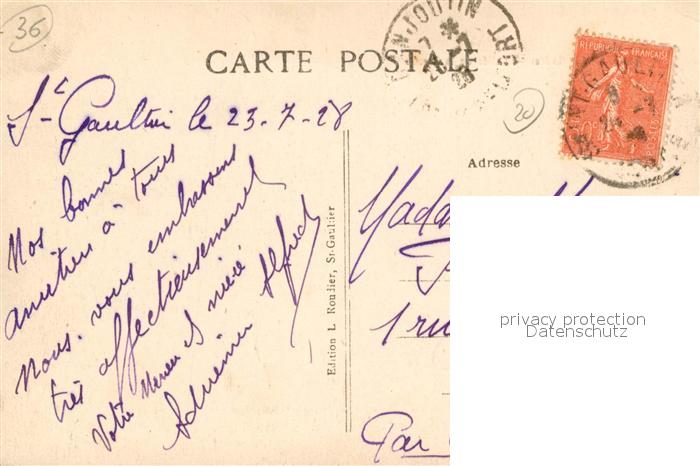 36
CARTE POSTALE
St Gaultier le 23-7-28
Nos bonnes
amitiés à tous
Nous vous embrassons
très affectueusement
Votre neveu et nièce
Adrienne Alfred
Edition L. Roudier, St-Gaultier
20
REPUBLIQUE FRANÇAISE
POSTES
Adresse
Mada
1 ru
Par
privacy protection
Datenschutz